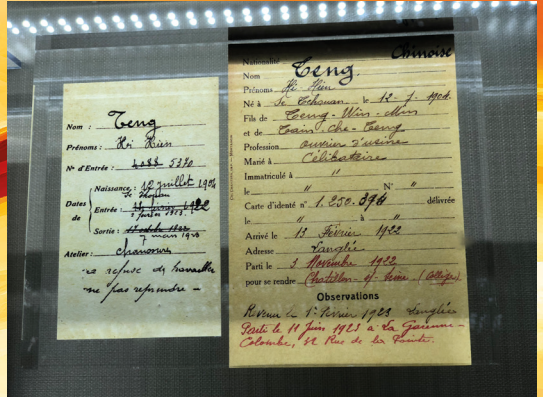 Nom : Teng
Prénoms : Hi Hien
N° d'Entrée : 5370
Naissance : 12 juillet 1904
Dates
de
Entrée : 1922
2 février 1923
Sortie :
7 mars 1923
Atelier : chaussures
a refusé de travailler
ne pas reprendre -
Nationalité Chinoise
Nom Teng
Prénoms Hi Hien
Né à Se Tchouan le 12-7-1904
Fils de Teng - Win - Min
et de Tain - che - Teng
Profession ouvrier d'usine
Marié à Célibataire
Immatriculé à "
le " N° "
Carte d'identité n° 1.250.394 délivrée
le " à "
Arrivé le 13 Février 1922
Adresse Langlée
Parti le 3 Novembre 1922
pour se rendre Chatillon-s/-Seine (Collège)
Observations
Revenu le 1er Février 1923 Langlée
Parti le 11 Juin 1923 à La Garenne-
Colombe, 39 Rue de la Pointe.